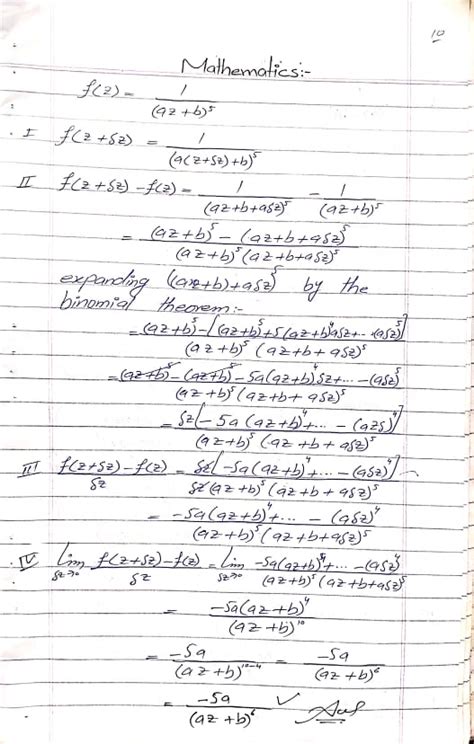 10
Mathematics:-
f(z) = 1/(az+b)⁵
I f(z+δz) = 1/(a(z+δz)+b)⁵
II f(z+δz) - f(z) = 1/(az+b+aδz)⁵ - 1/(az+b)⁵
= (az+b)⁵ - (az+b+aδz)⁵/(az+b)⁵(az+b+aδz)⁵
expanding ((az+b)+aδz)⁵ by the
binomial theorem:-
= (az+b)⁵ - [(az+b)⁵+5(az+b)⁴aδz+...+(aδz)⁵]/(az+b)⁵ (az+b+aδz)⁵
= (az+b)⁵ - (az+b)⁵ - 5a(az+b)⁴δz+... - (aδz)⁵/(az+b)⁵ (az+b+aδz)⁵
= δz[-5a(az+b)⁴+... - (aδz)⁴]/(az+b)⁵ (az+b+aδz)⁵
III f(z+δz) - f(z)/δz = δz[-5a(az+b)⁴+... - (aδz)⁴]/δz(az+b)⁵ (az+b+aδz)⁵
= -5a(az+b)⁴+... - (aδz)⁴/(az+b)⁵ (az+b+aδz)⁵
IV lim δz→0 f(z+δz) - f(z)/δz = lim δz→0 -5a(az+b)⁴+... - (aδz)⁴/(az+b)⁵ (az+b+aδz)⁵
= -5a(az+b)⁴/(az+b)¹⁰
= -5a/(az+b)¹⁰⁻⁴ = -5a/(az+b)⁶
= -5a/(az+b)⁶ ✓ Ans